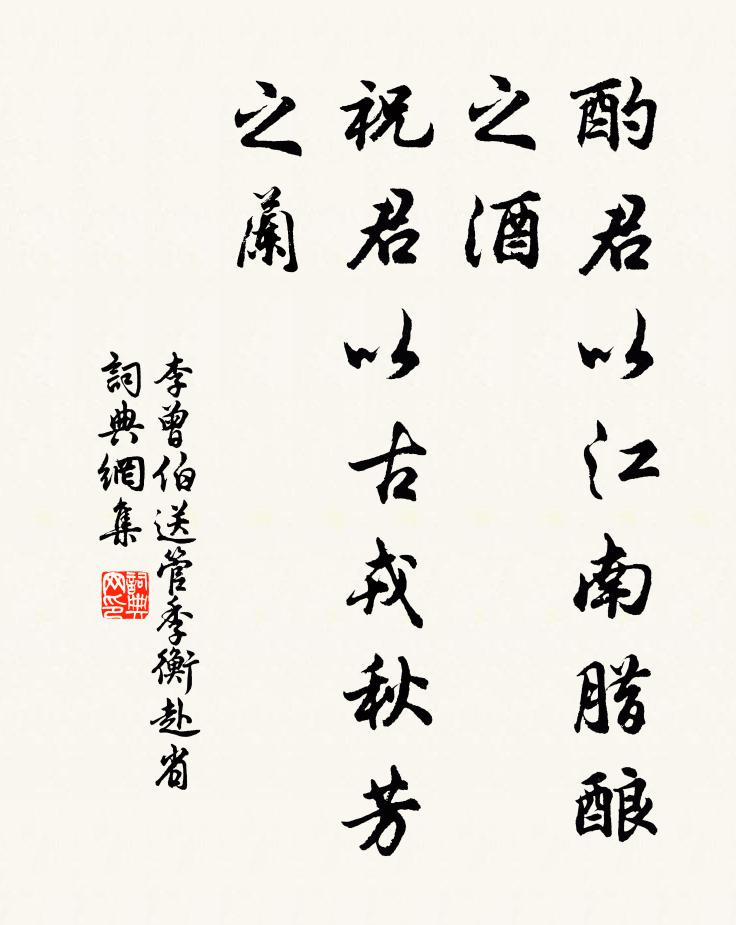 酌君以江南腊酿
之酒
祝君以古戎秋芳
之蘭
李曾伯送管季衡赴省
詞典網集
詞典
网印